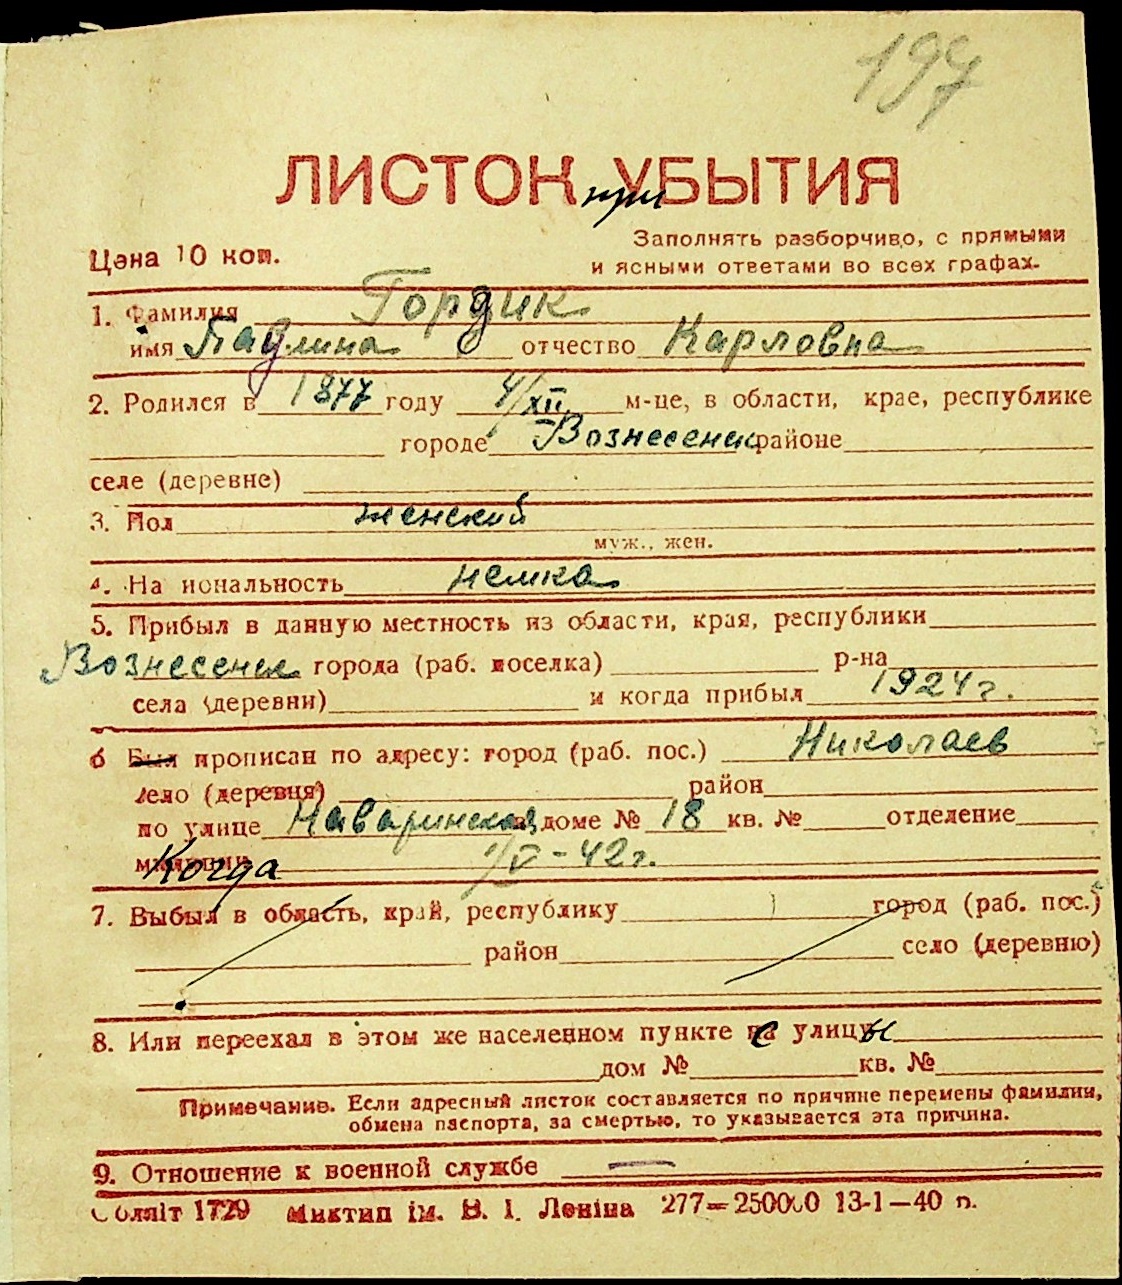 197
ЛИСТОК при УБЫТИЯ
Заполнять разборчиво, с прямыми
Цена 10 коп.
и ясными ответами во всех графах.
1. Фамилия Гордик
имя Паулина отчество Карловна
2. Родился в 1877 году 4/XII м-це, в области, крае, республике
городе Вознесенск районе
селе (деревне)
3. Пол женский
муж., жен.
4. На иональность немка
5. Прибыл в данную местность из области, края, республики
Вознесенск города (раб. поселка) р-на
села (деревни) и когда прибыл 1924 г.
6 Был прописан по адресу: город (раб. пос.) Николаев
село (деревня) район
по улице Наваринская доме № 18 кв. № отделение
милиции Когда 1/V-42 г.
7. Выбыл в область, край, республику город (раб. пос.)
район село (деревню)
8. Или переехал в этом же населенном пункте с улицы
дом № кв. №
Примечание. Если адресный листок составляется по причине перемены фамилии,
обмена паспорта, за смертью, то указывается эта причина.
9. Отношение к военной службе —
Облліт 1729 Миктип ім. В. І. Леніна 277—250000 13-1—40 п.